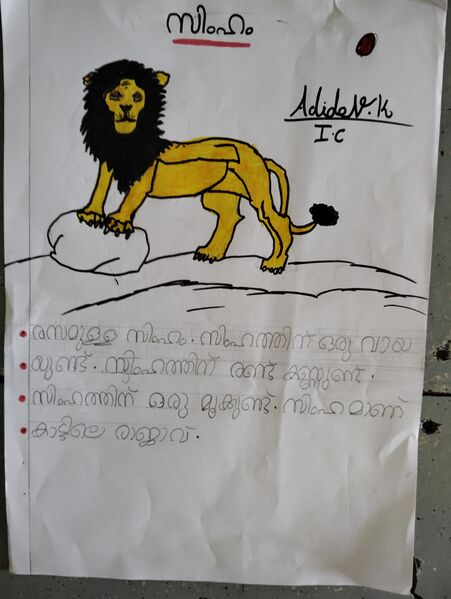 സിംഹം
Adidev.K
I.C
രസമുള്ള സിംഹം. സിംഹത്തിന് ഒരു വായ
യുണ്ട്. സിംഹത്തിന് രണ്ട് കണ്ണുണ്ട്.
സിംഹത്തിന് ഒരു മൂക്കുണ്ട്. സിംഹമാണ്
കാട്ടിലെ രാജാവ്.